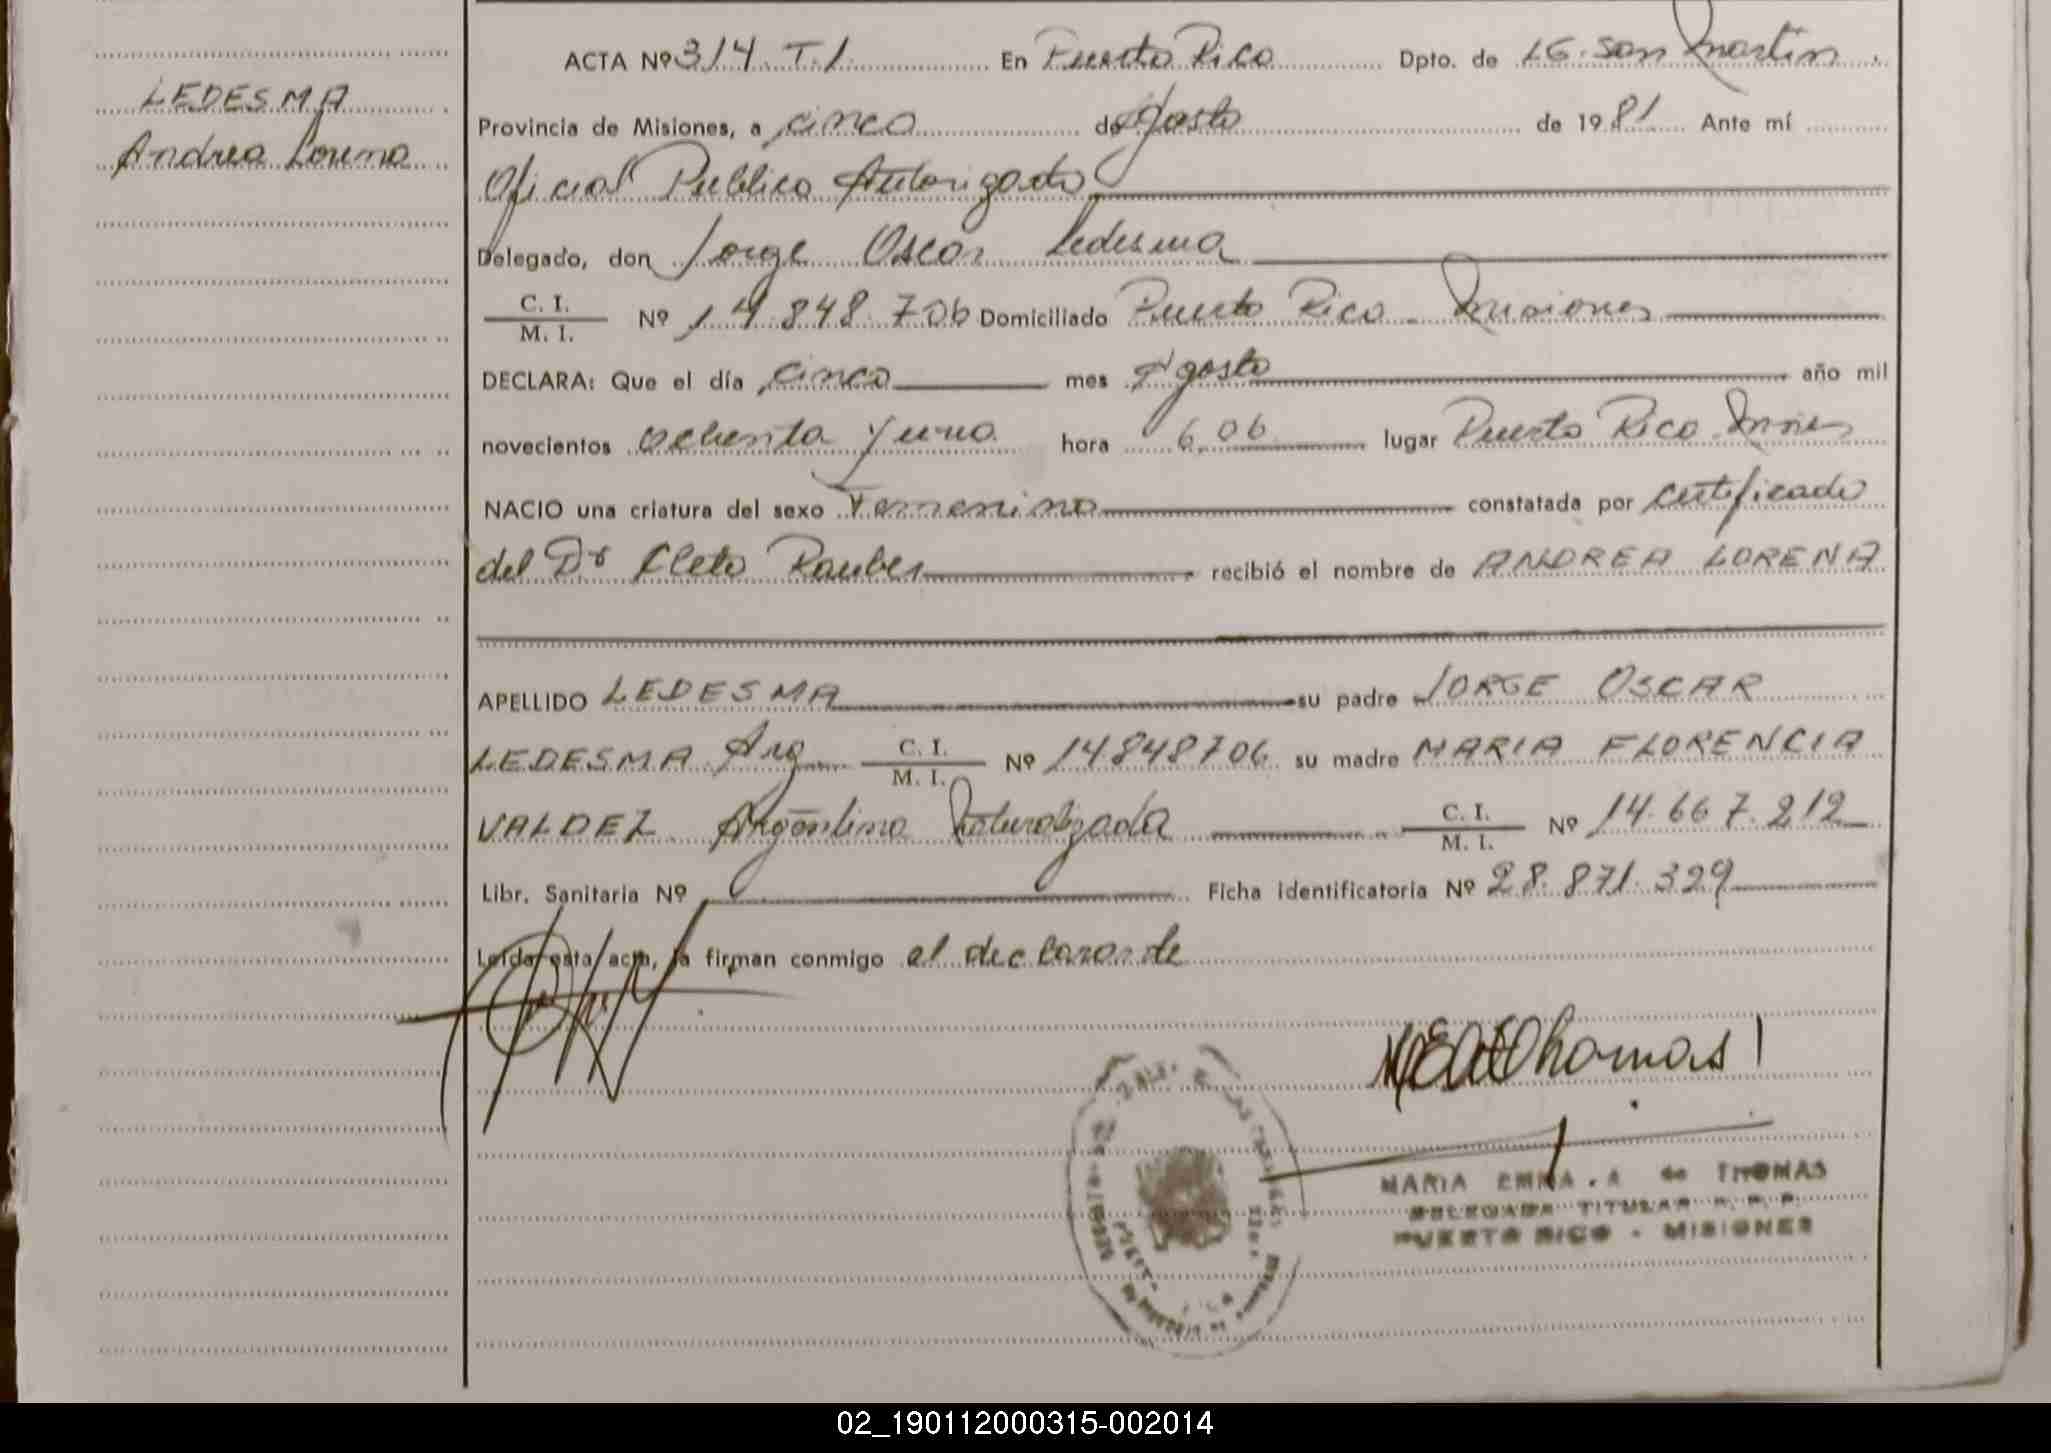 LEDESMA
Andrea Lorena
ACTA Nº 314. T.1. En Puerto Rico Dpto. de LG. San Martin
Provincia de Misiones, a cinco de Agosto de 1981 Ante mí
Oficial Publico Autorizado
Delegado, don Jorge Oscar Ledesma
C. I. / M. I. Nº 14.848.706 Domiciliado Puerto Rico - Misiones
DECLARA: Que el día cinco mes Agosto año mil
novecientos ochenta y uno hora 6,06 lugar Puerto Rico Mnes
NACIO una criatura del sexo Femenino constatada por certificado
del Dr Cleto Rauber recibió el nombre de ANDREA LORENA
APELLIDO LEDESMA su padre JORGE OSCAR
LEDESMA Arg C. I. / M. I. Nº 14848706 su madre MARIA FLORENCIA
VALDEZ Argentina Naturalizada C. I. / M. I. Nº 14.667.212
Libr. Sanitaria Nº Ficha identificatoria Nº 28.871.329
Leída esta acta, la firman conmigo el declarande
Thomas
MARIA EMMA . A de THOMAS
DELEGADA TITULAR R. P. P.
PUERTO RICO - MISIONES
02_190112000315-002014